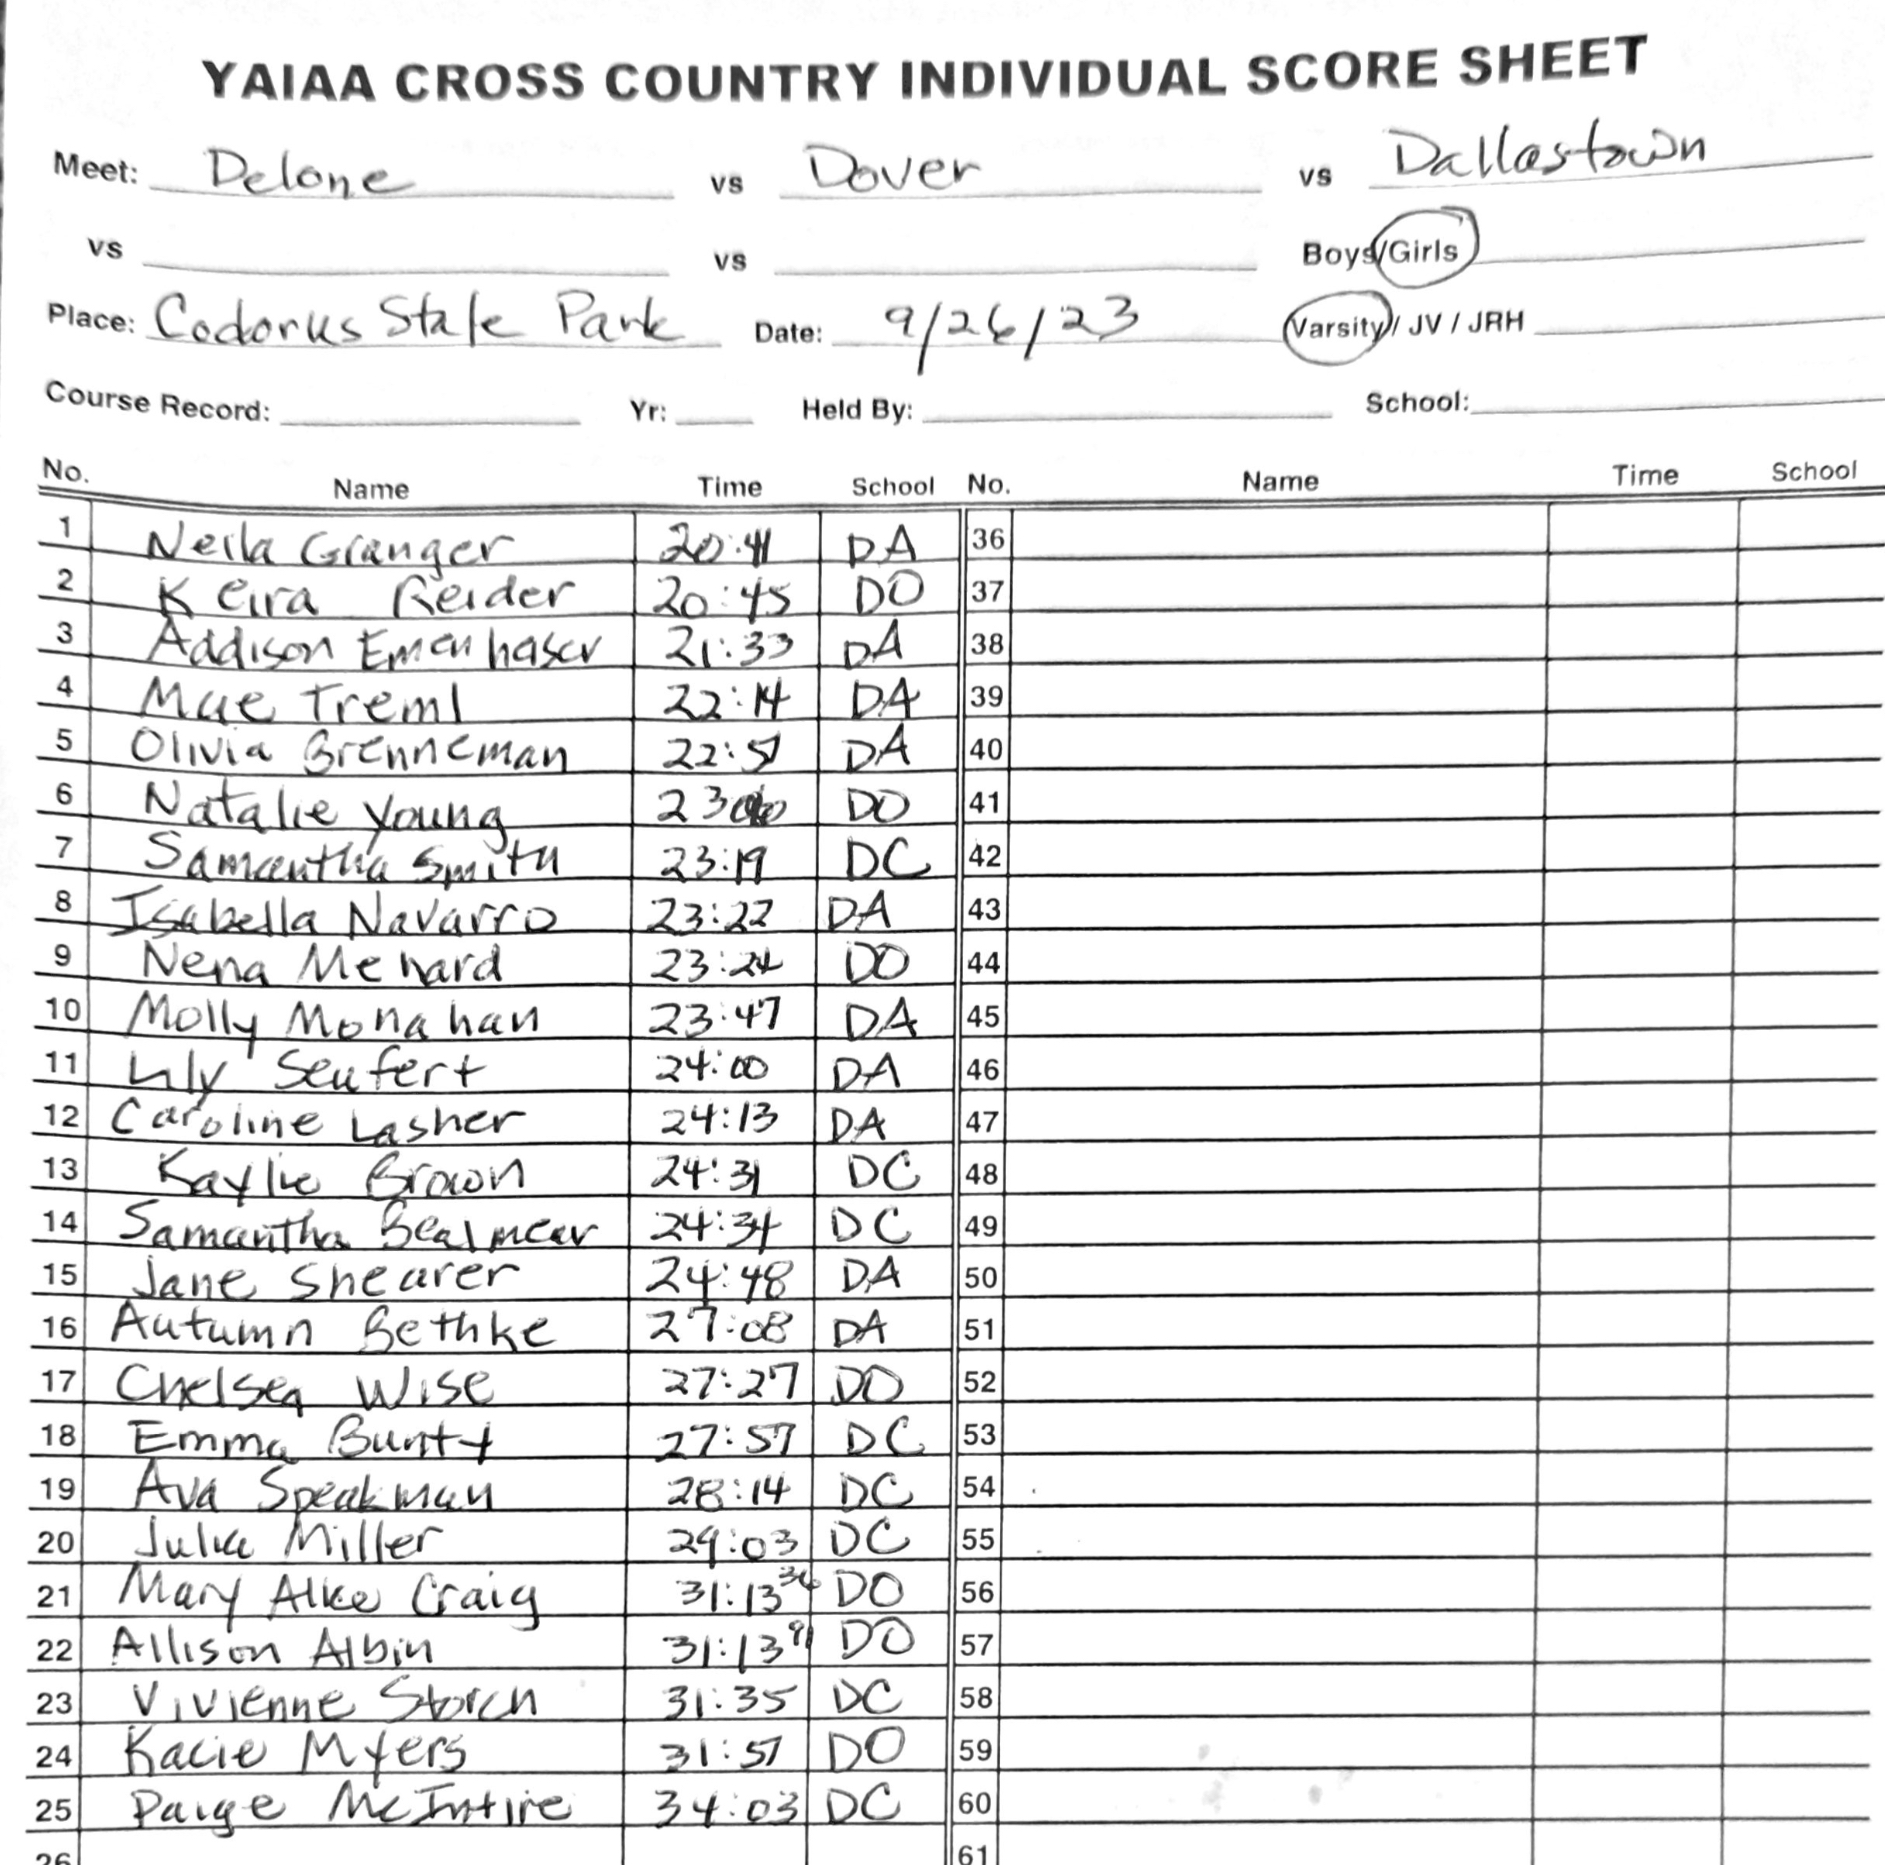 YAIAA CROSS COUNTRY INDIVIDUAL SCORE SHEET
Meet: Delone vs Dover vs Dallastown
vs vs Boys/Girls
Place: Codorus State Park Date: 9/26/23 Varsity / JV / JRH
Course Record: Yr: Held By: School:
No. Name Time School No. Name Time School
1 Neila Granger 20:41 DA 36
2 Keira Reider 20:45 DO 37
3 Addison Emenhaser 21:33 DA 38
4 Mae Treml 22:14 DA 39
5 Olivia Brenneman 22:51 DA 40
6 Natalie Young DO 41
7 Samantha Smith 23:19 DC 42
8 Isabella Navarro 23:22 DA 43
9 Nena Menard 23:24 DO 44
10 Molly Monahan 23:47 DA 45
11 Lily Seufert 24:00 DA 46
12 Caroline Lasher 24:13 DA 47
13 Kaylie Brown 24:31 DC 48
14 Samantha Bealmear 24:34 DC 49
15 Jane Shearer 24:48 DA 50
16 Autumn Bethke 27:08 DA 51
17 Chelsea Wise 27:27 DO 52
18 Emma Bunty 27:57 DC 53
19 Ava Speakman 28:14 DC 54
20 Julia Miller 29:03 DC 55
21 Mary Alice Craig 31:13 36 DO 56
22 Allison Albin 31:13 91 DO 57
23 Vivienne Storch 31:35 DC 58
24 Kacie Myers 31:51 DO 59
25 Paige McIntire 34:03 DC 60
26 61